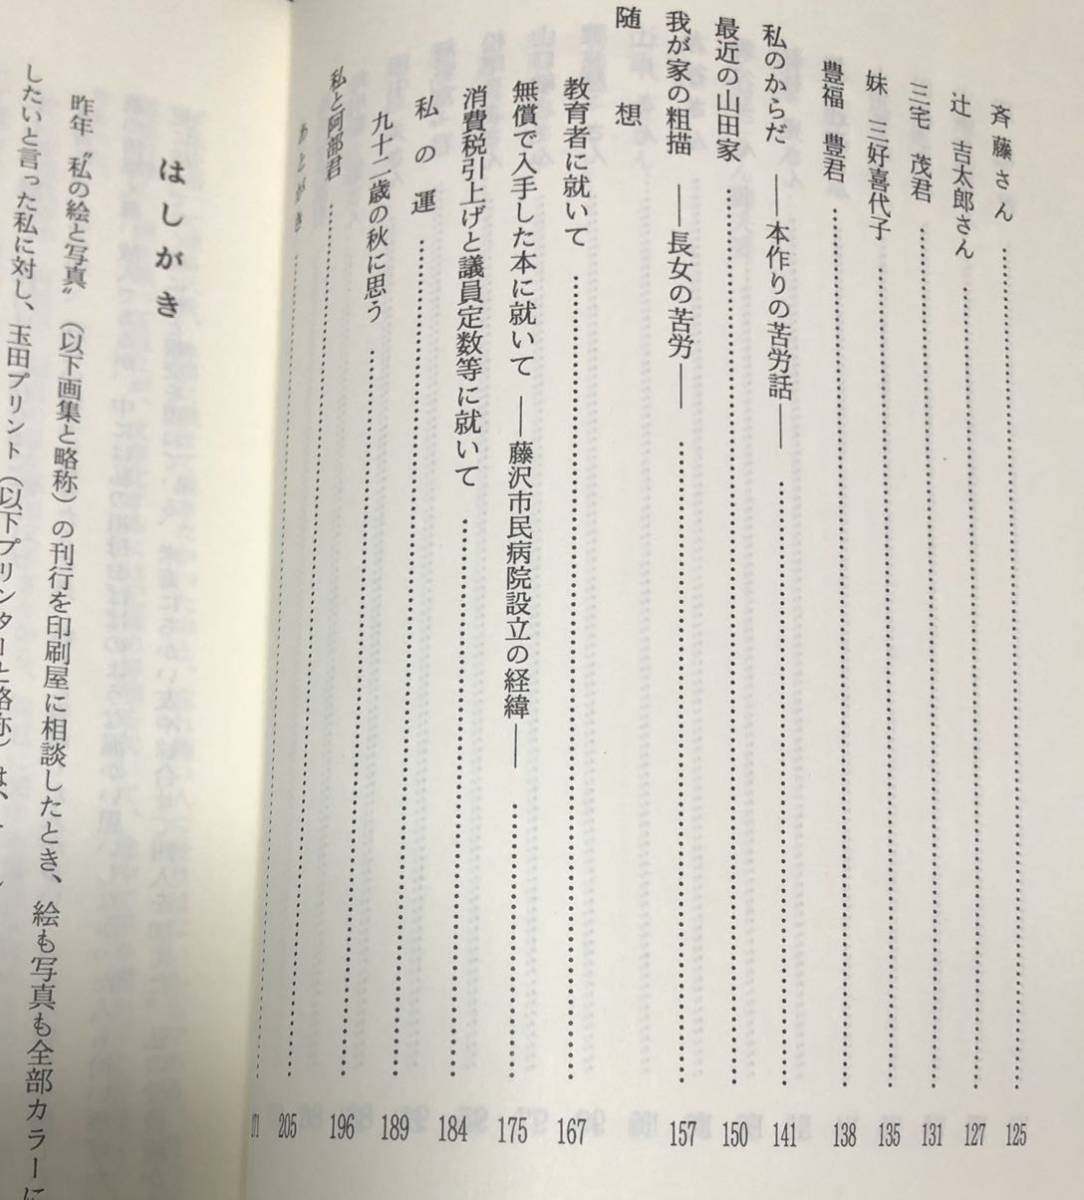 斉藤さん……125
辻 吉太郎さん……127
三宅 茂君……131
妹 三好喜代子……135
豊福 豊君……138
私のからだ ――本作りの苦労話――……141
最近の山田家……150
我が家の粗描 ――長女の苦労――……157
随 想
教育者に就いて……167
無償で入手した本に就いて ――藤沢市民病院設立の経緯――……175
消費税引上げと議員定数等に就いて……184
私の運……189
九十二歳の秋に思う……196
私と阿部君……205
あとがき……
はしがき
昨年〝私の絵と写真〟（以下画集と略称）の刊行を印刷屋に相談したとき、絵も写真も全部カラーに
したいと言った私に対し、玉田プリント（以下プリンターと略称）は、